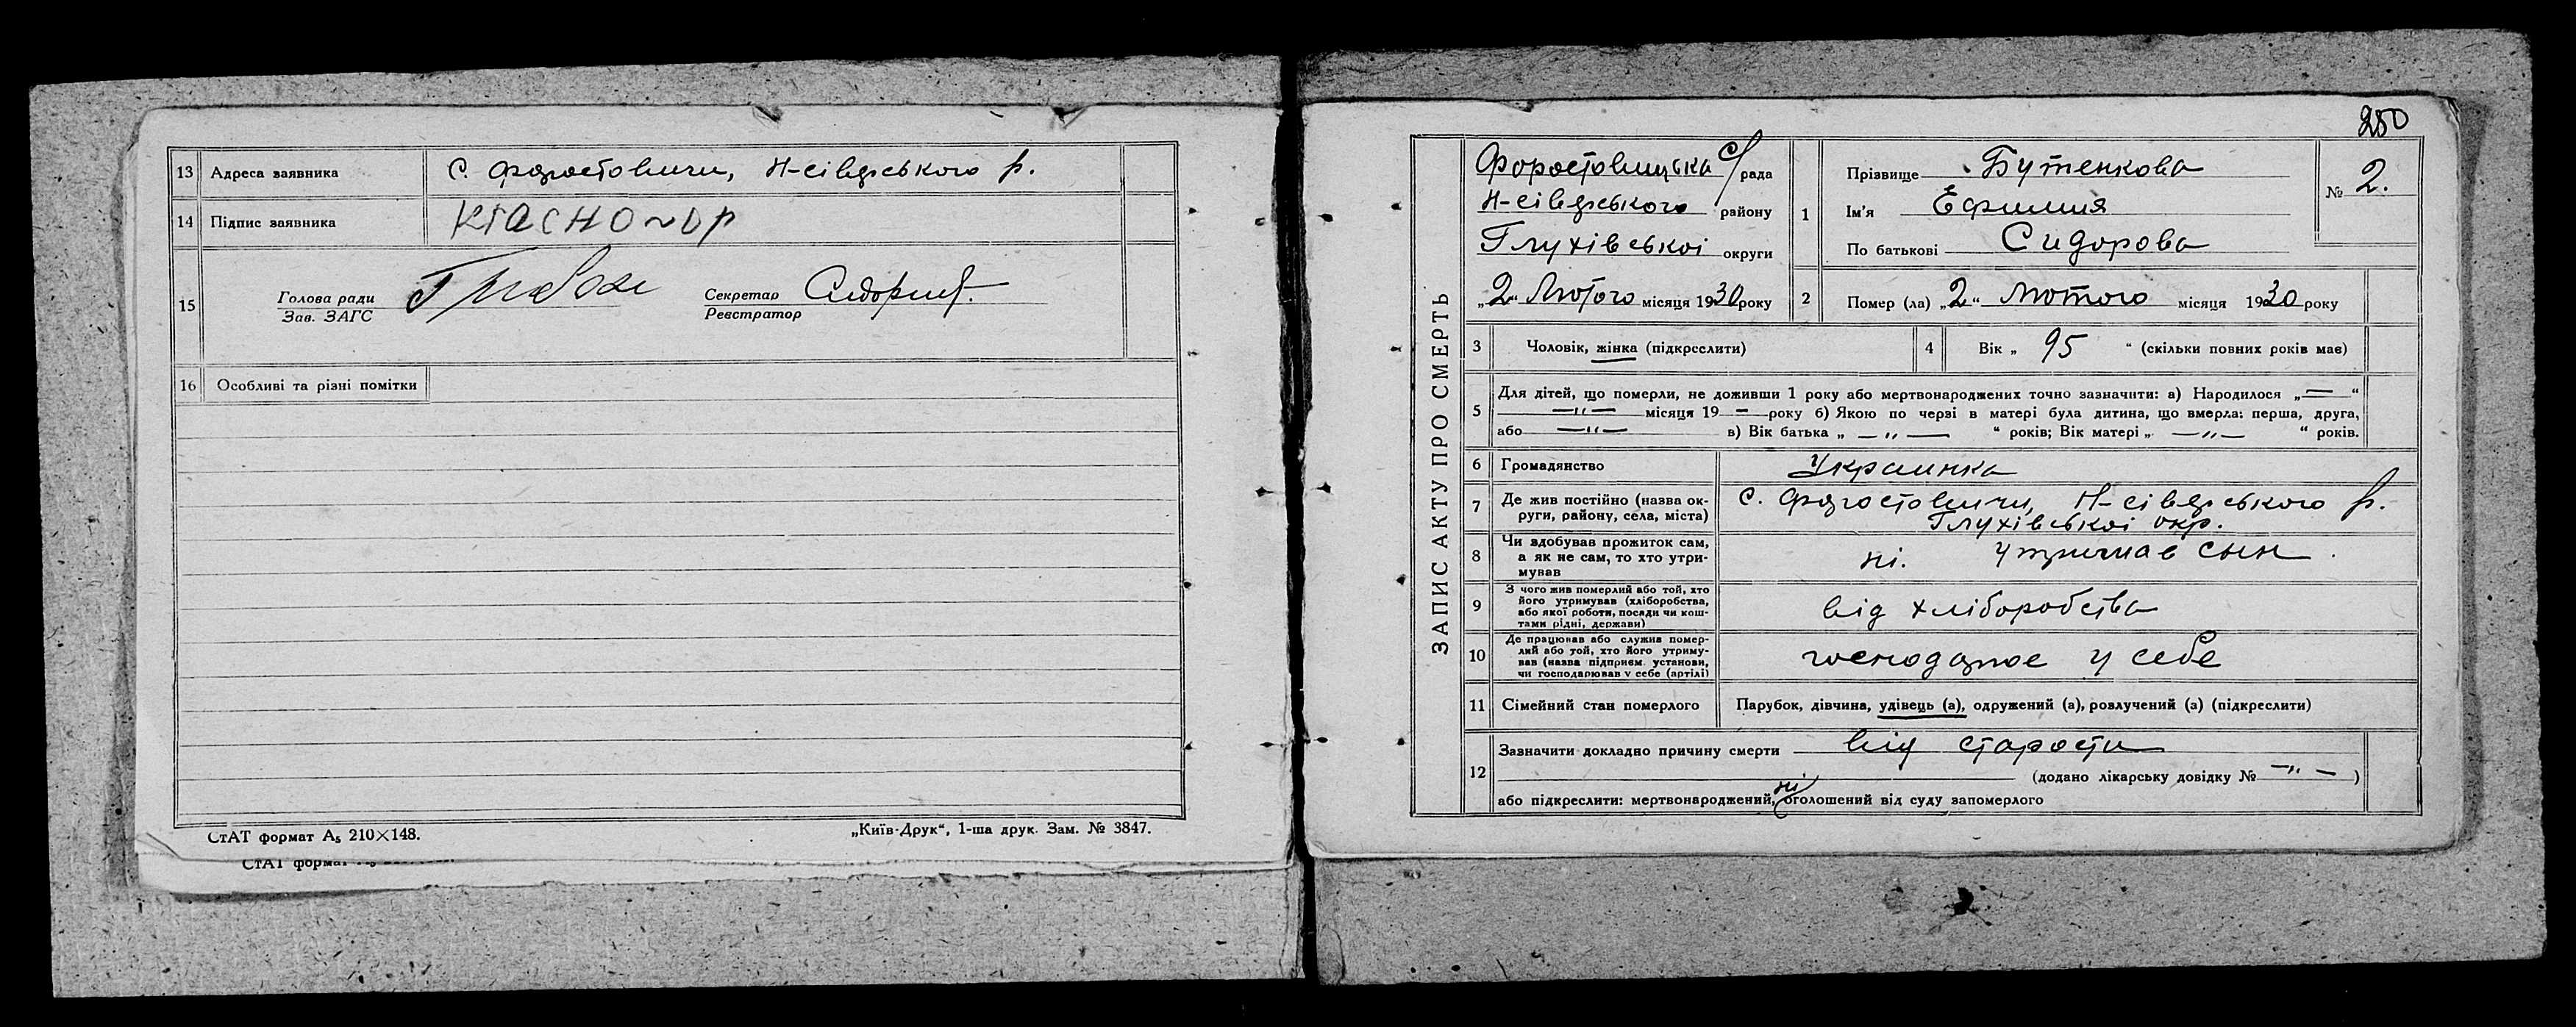 13 Адреса заявника С. Форостовичи, Н-сіверського р.
14 Підпис заявника
15 Голова ради Секретар
Зав. ЗАГС Реєстратор
16 Особливі та різні помітки
СтАТ формат А₅ 210×148. „Київ-Друк“, 1-ша друк. Зам. № 3847.
СтАТ формат А₅
250
ЗАПИС АКТУ ПРО СМЕРТЬ
Форостовицька с/рада
Н-сіверського району
Глухівськоі округи
„2“ Лютого місяця 1930 року
1 Прізвище Бутенкова
Ім'я Ефимия
По батькові Сидорова
№ 2.
2 Помер (ла) „2“ Лютого місяця 1930 року
3 Чоловік, жінка (підкреслити) 4 Вік „ 95 “ (скільки повних років має)
5 Для дітей, що померли, не доживши 1 року або мертвонароджених точно зазначити: а) Народилося „—“
—„— місяця 19 — року б) Якою по черзі в матері була дитина, що вмерла: перша, друга,
або —„— в) Вік батька „ —„— “ років; Вік матері „ —„— “ років.
6 Громадянство Украинка
7 Де жив постійно (назва ок-
руги, району, села, міста)
С. Форостовичи, Н-сіверського р.
Глухівськоі окр.
8 Чи здобував прожиток сам,
а як не сам, то хто утри-
мував
ні. утримав сын.
9 З чого жив померлий або той, хто
його утримував (хліборобства,
або якої роботи, посади чи кош-
тами рідні, держави)
від хліборобства
10 Де працював або служив помер-
лий або той, хто його утриму-
вав (назва підприєм. установи,
чи господарював у себе (артілі)
господарює у себе
11 Сімейний стан померлого Парубок, дівчина, удівець (а), одружений (а), розлучений (а) (підкреслити)
12 Зазначити докладно причину смерти від старости
(додано лікарську довідку № —„— )
ні
або підкреслити: мертвонароджений, оголошений від суду запомерлого